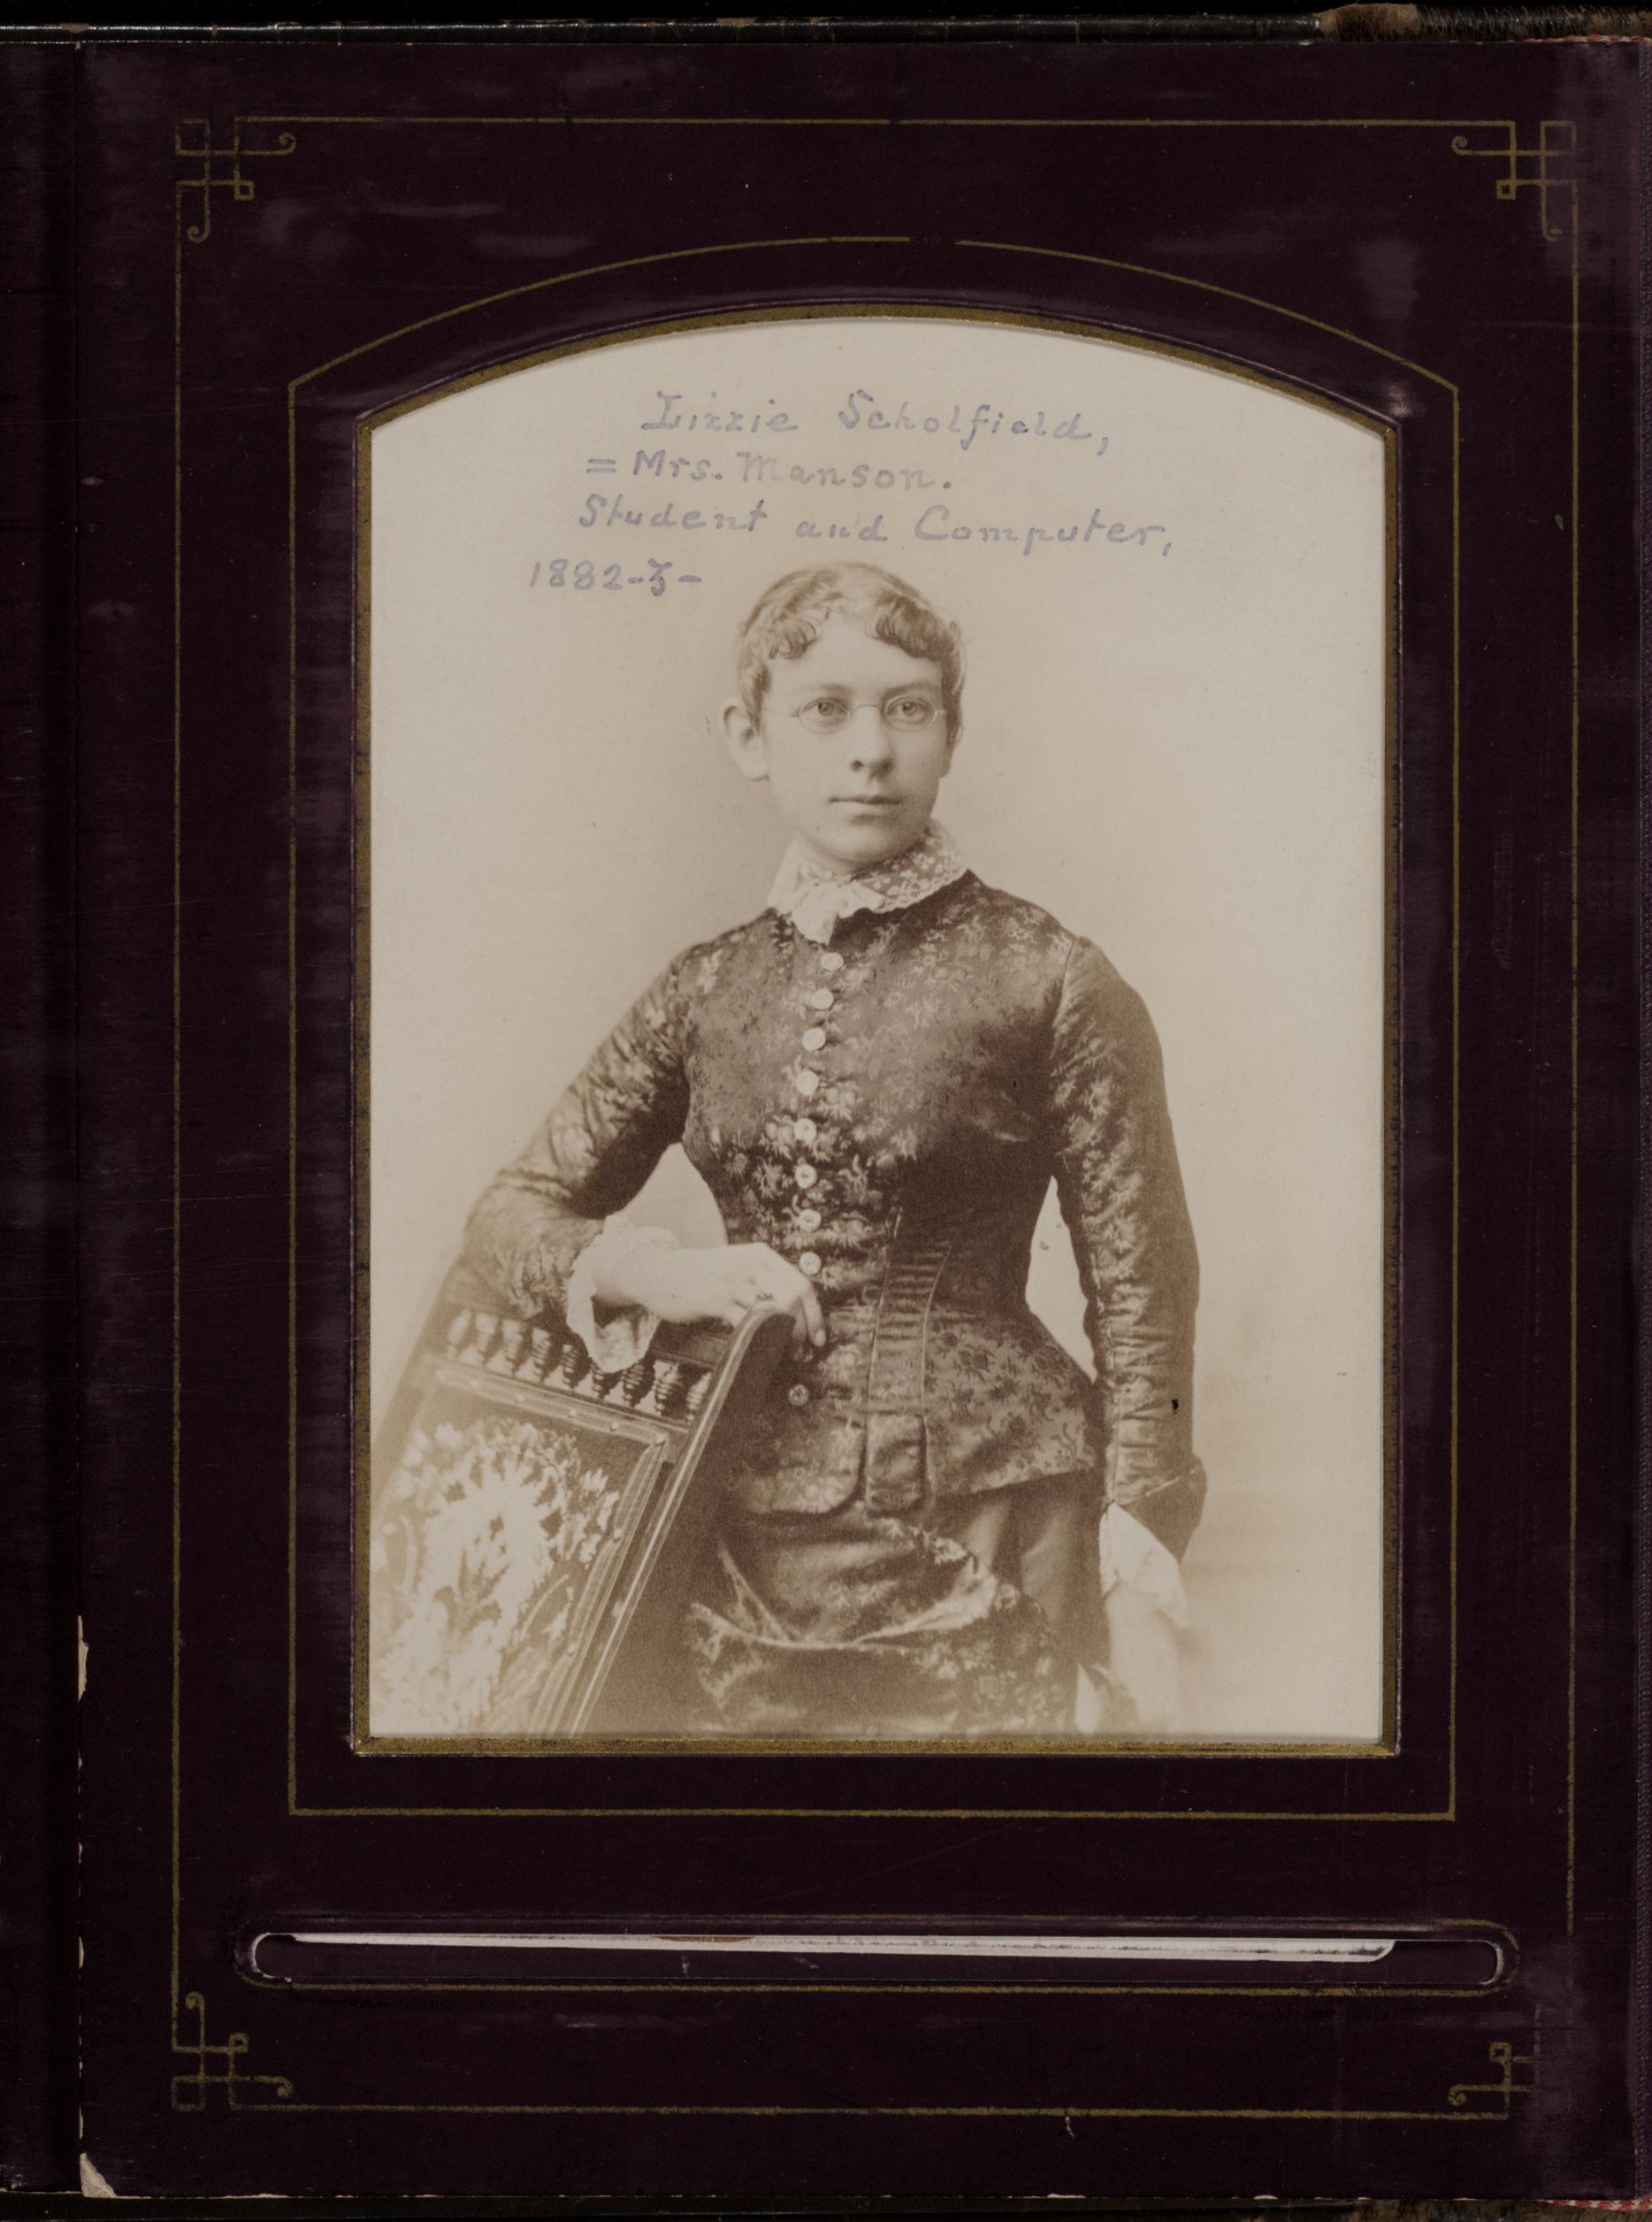 Lizzie Scholfield,
= Mrs. Manson.
Student and Computer,
1882-3-